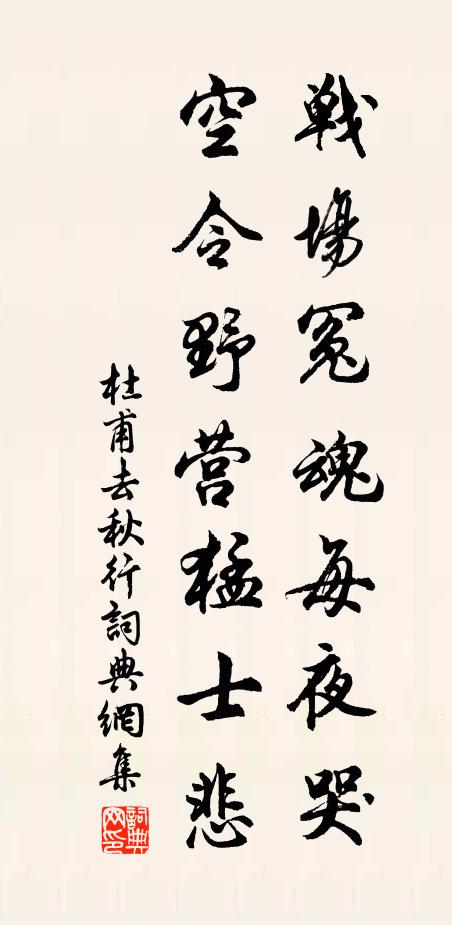 戦場冤魂每夜哭
空令野营猛士悲
杜甫去秋行詞典網集
詞典網印